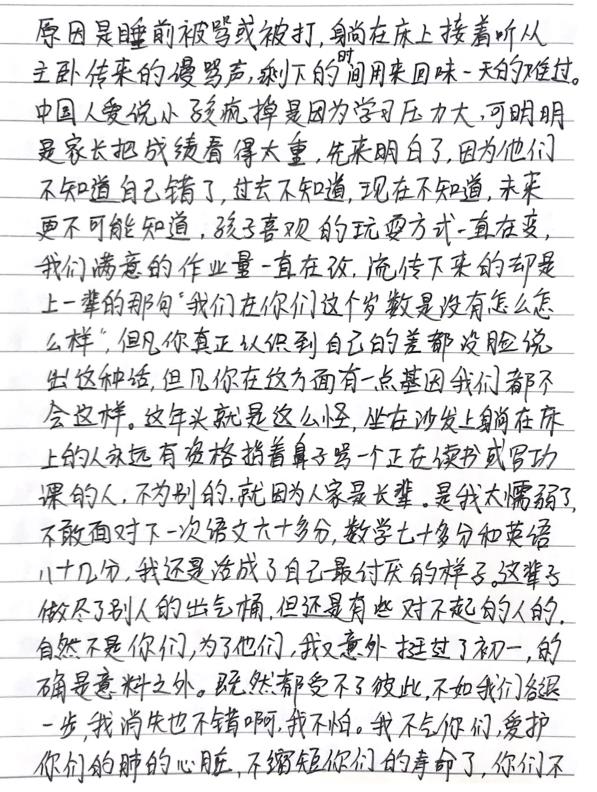 原因是睡前被骂或被打，躺在床上接着听从
主卧传来的谩骂声，剩下的时间用来回味一天的难过。
中国人爱说小孩疯掉是因为学习压力大，可明明
是家长把成绩看得太重，先来明白了，因为他们
不知道自己错了，过去不知道，现在不知道，未来
更不可能知道，孩子喜欢的玩耍方式一直在变，
我们满意的作业量一直在改，流传下来的却是
上一辈的那句“我们在你们这个岁数是没有怎么怎
么样”，但凡你真正认识到自己的差都没脸说
出这种话，但凡你在这方面有一点基因我们都不
会这样。这年头就是这么怪，坐在沙发上躺在床
上的人永远有资格指着鼻子骂一个正在读书或写功
课的人，不为别的，就因为人家是长辈。是我太懦弱了，
不敢面对下一次语文六十多分，数学七十多分和英语
八十几分，我还是活成了自己最讨厌的样子。这辈子
做尽了别人的出气桶，但还是有些对不起的人的，
自然不是你们，为了他们，我又意外挺过了初一，的
确是意料之外。既然都受不了彼此，不如我们各退
一步，我消失也不错啊，我不怕。我不气你们，爱护
你们的肺的心脏，不缩短你们的寿命了，你们不